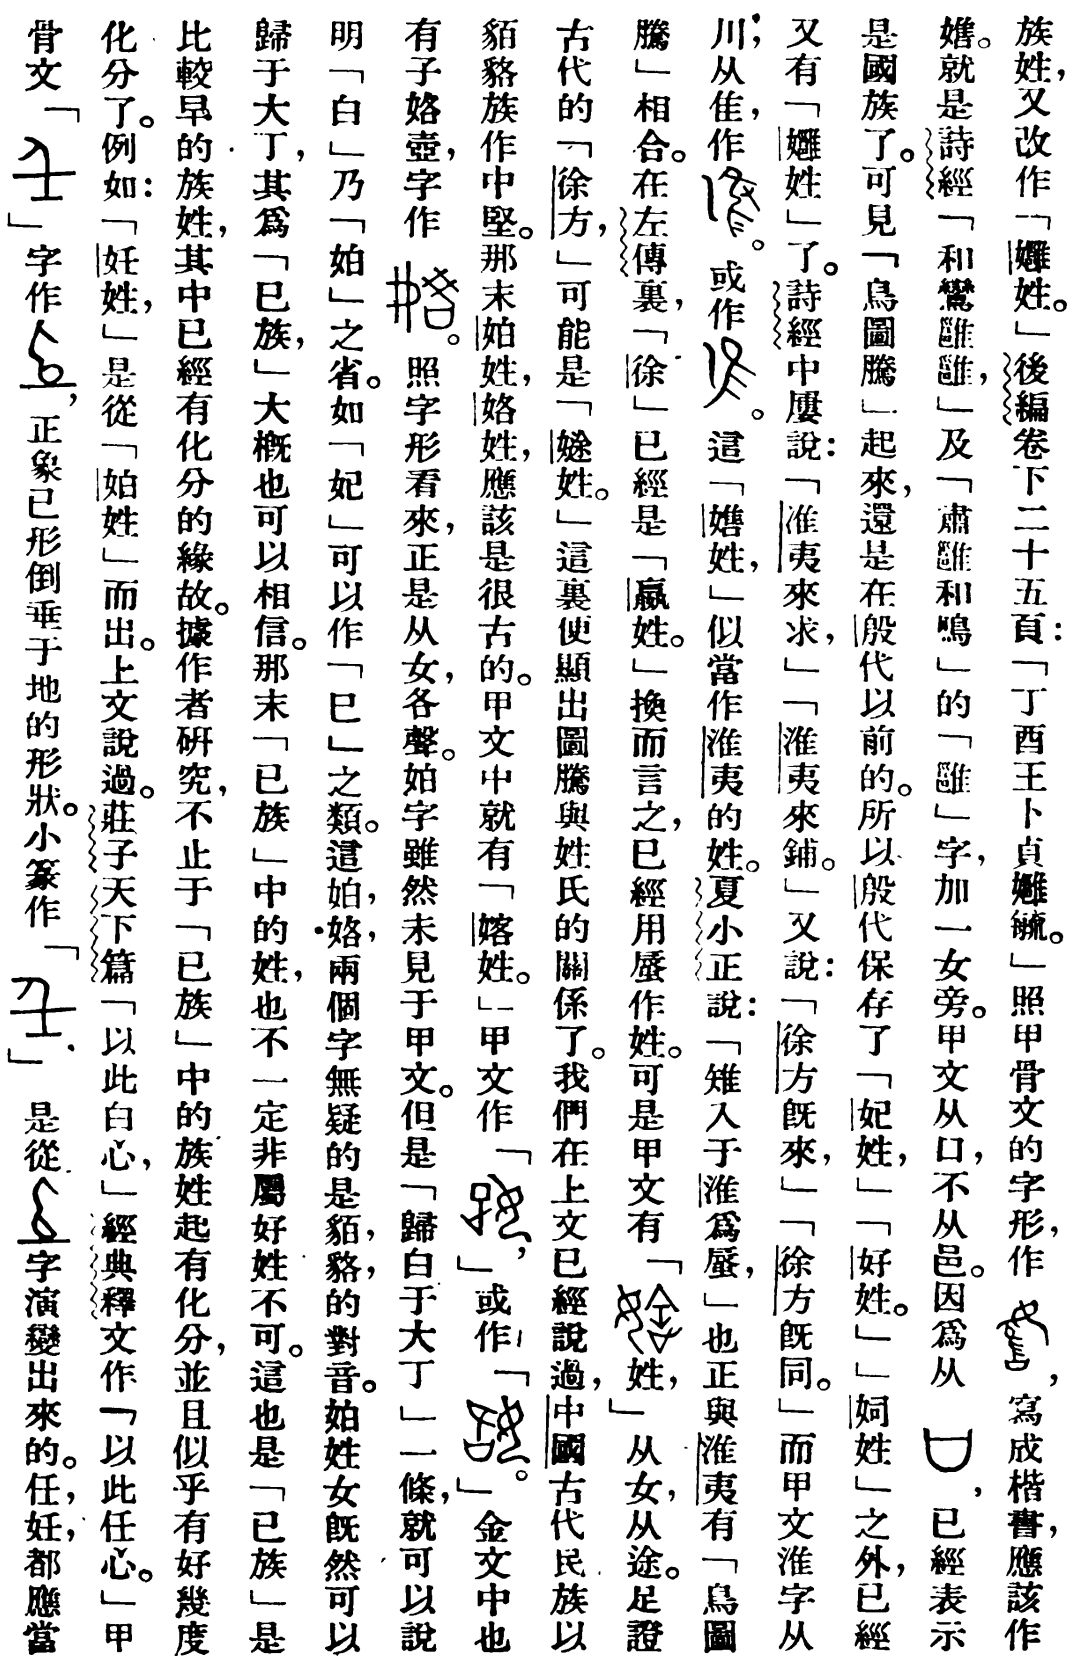 族姓，又改作「雝姓。」後編卷下二十五頁：「丁酉王卜貞雝毓。」照甲骨文的字形，作，寫成楷書，應該作
就是詩經「和鸞雝雝，」及「肅雝和鳴」的「雝」字，加一女旁。甲文从口，不从邑。因爲从，已經表示
是國族了。可見「鳥圖騰」起來，還是在殷代以前的。所以殷代保存了「妃姓，」「好姓。」「姛姓」之外，已經
又有「姓」了。詩經中屢說：「淮夷來求，」「淮夷來鋪。」又說：「徐方旣來，」「徐方旣同。」而甲文淮字从
川；从隹，作。或作。這「姓，」似當作淮夷的姓。夏小正說：「雉入于淮爲蜃，」也正與淮夷有「鳥圖
騰」相合。在左傳裏，「徐」已經是「嬴姓。」換而言之，已經用蜃作姓。可是甲文有「姓，」从女，从途。足證
古代的「徐方，」可能是「姓。」這裏便顯出圖騰與姓氏的關係了。我們在上文已經說過，中國古代民族以
貊貉族作中堅。那末姶姓，姳姓，應該是很古的。甲文中就有「姓。」甲文作「，」或作「。」金文中也
有子姳壺，字作。照字形看來，正是从女，各聲。妭字雖然未見于甲文。但是「歸白于大丁」一條，就可以說
明「白」乃「㚢」之省。如「妃」可以作「巳」之類。這，兩個字無疑的是貊，貉的對音。姓女旣然可以
歸于大丁，其爲「巳族，」大槪也可以相信。那末「巳族」中的姓，也不一定非屬好姓不可。這也是「巳族」是
比較早的族姓，其中已經有化分的緣故。據作者研究，不止于「巳族」中的族姓起有化分，並且似乎有好幾度
化分了。例如：「妊姓，」是從「姓」而出。上文說過。莊子天下篇「以此白心，」經典釋文作「以此任心。」甲
骨文「」字作，正象巳形倒垂于地的形狀。小篆作「」是從字演變出來的。任，妊，都應當